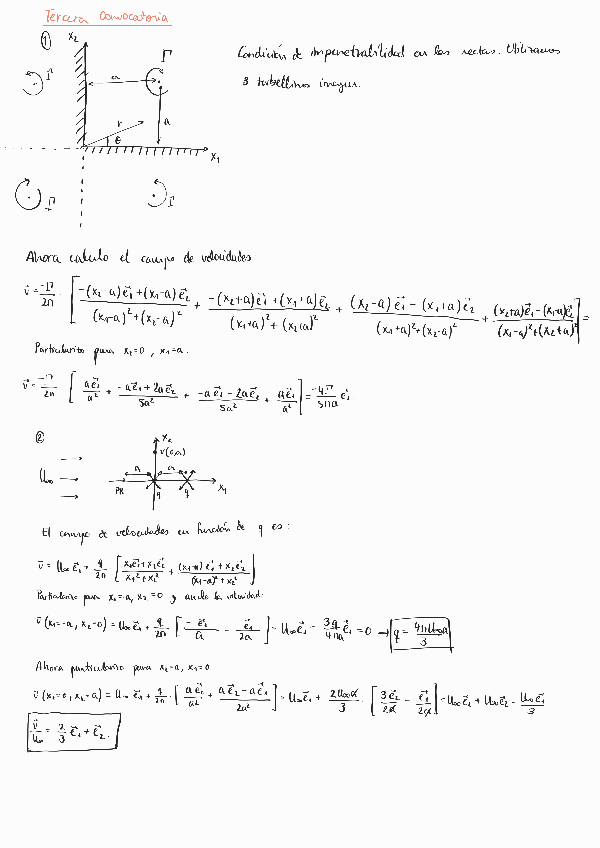 Tercera Convocatoria
① x₂ Γ
Condición de impenetrabilidad en las rectas. Utilizamos
3 torbellinos imagen.
Γ a
r a
θ
x₁
Γ Γ
Ahora calculo el campo de velocidades
v⃗ = -Γ/2π · [ (-(x₂-a)e⃗₁+(x₁-a)e⃗₂)/((x₁-a)²+(x₂-a)²) + (-(x₂+a)e⃗₁+(x₁+a)e⃗₂)/((x₁+a)²+(x₂+a)²) + ((x₂-a)e⃗₁-(x₁+a)e⃗₂)/((x₁+a)²+(x₂-a)²) + ((x₂+a)e⃗₁-(x₁-a)e⃗₂)/((x₁-a)²+(x₂+a)²) ] =
Particularizo para x₂=0, x₁=a.
v⃗ = -Γ/2π [ ae⃗₁/a² + (-ae⃗₁+2ae⃗₂)/5a² + (-ae⃗₁-2ae⃗₂)/5a² + ae⃗₁/a² ] = -4Γ/5πa e⃗₁
② x₂
v(0,a)
U∞ a a
PR q q x₁
El campo de velocidades en función de q es:
v⃗ = U∞ e⃗₁ + q/2π [ (x₁e⃗₁+x₂e⃗₂)/(x₁²+x₂²) + ((x₁-a)e⃗₁+x₂e⃗₂)/((x₁-a)²+x₂²) ]
Particularizo para x₁=-a, x₂=0 y anulo la velocidad.
v⃗(x₁=-a, x₂=0) = U∞e⃗₁ + q/2π [ -e⃗₁/a - e⃗₁/2a ] = U∞e⃗₁ - 3q/4πa e⃗₁ = 0 → q = 4πU∞a/3
Ahora particularizo para x₂=a, x₁=0
v⃗(x₁=0, x₂=a) = U∞e⃗₁ + q/2π · [ ae⃗₂/a² + (ae⃗₂-ae⃗₁)/2a² ] = U∞e⃗₁ + 2U∞a/3 · [ 3e⃗₂/2a - e⃗₁/2a ] = U∞e⃗₁ + U∞e⃗₂ - U∞e⃗₁/3
v⃗/U∞ = 2/3 e⃗₁ + e⃗₂.